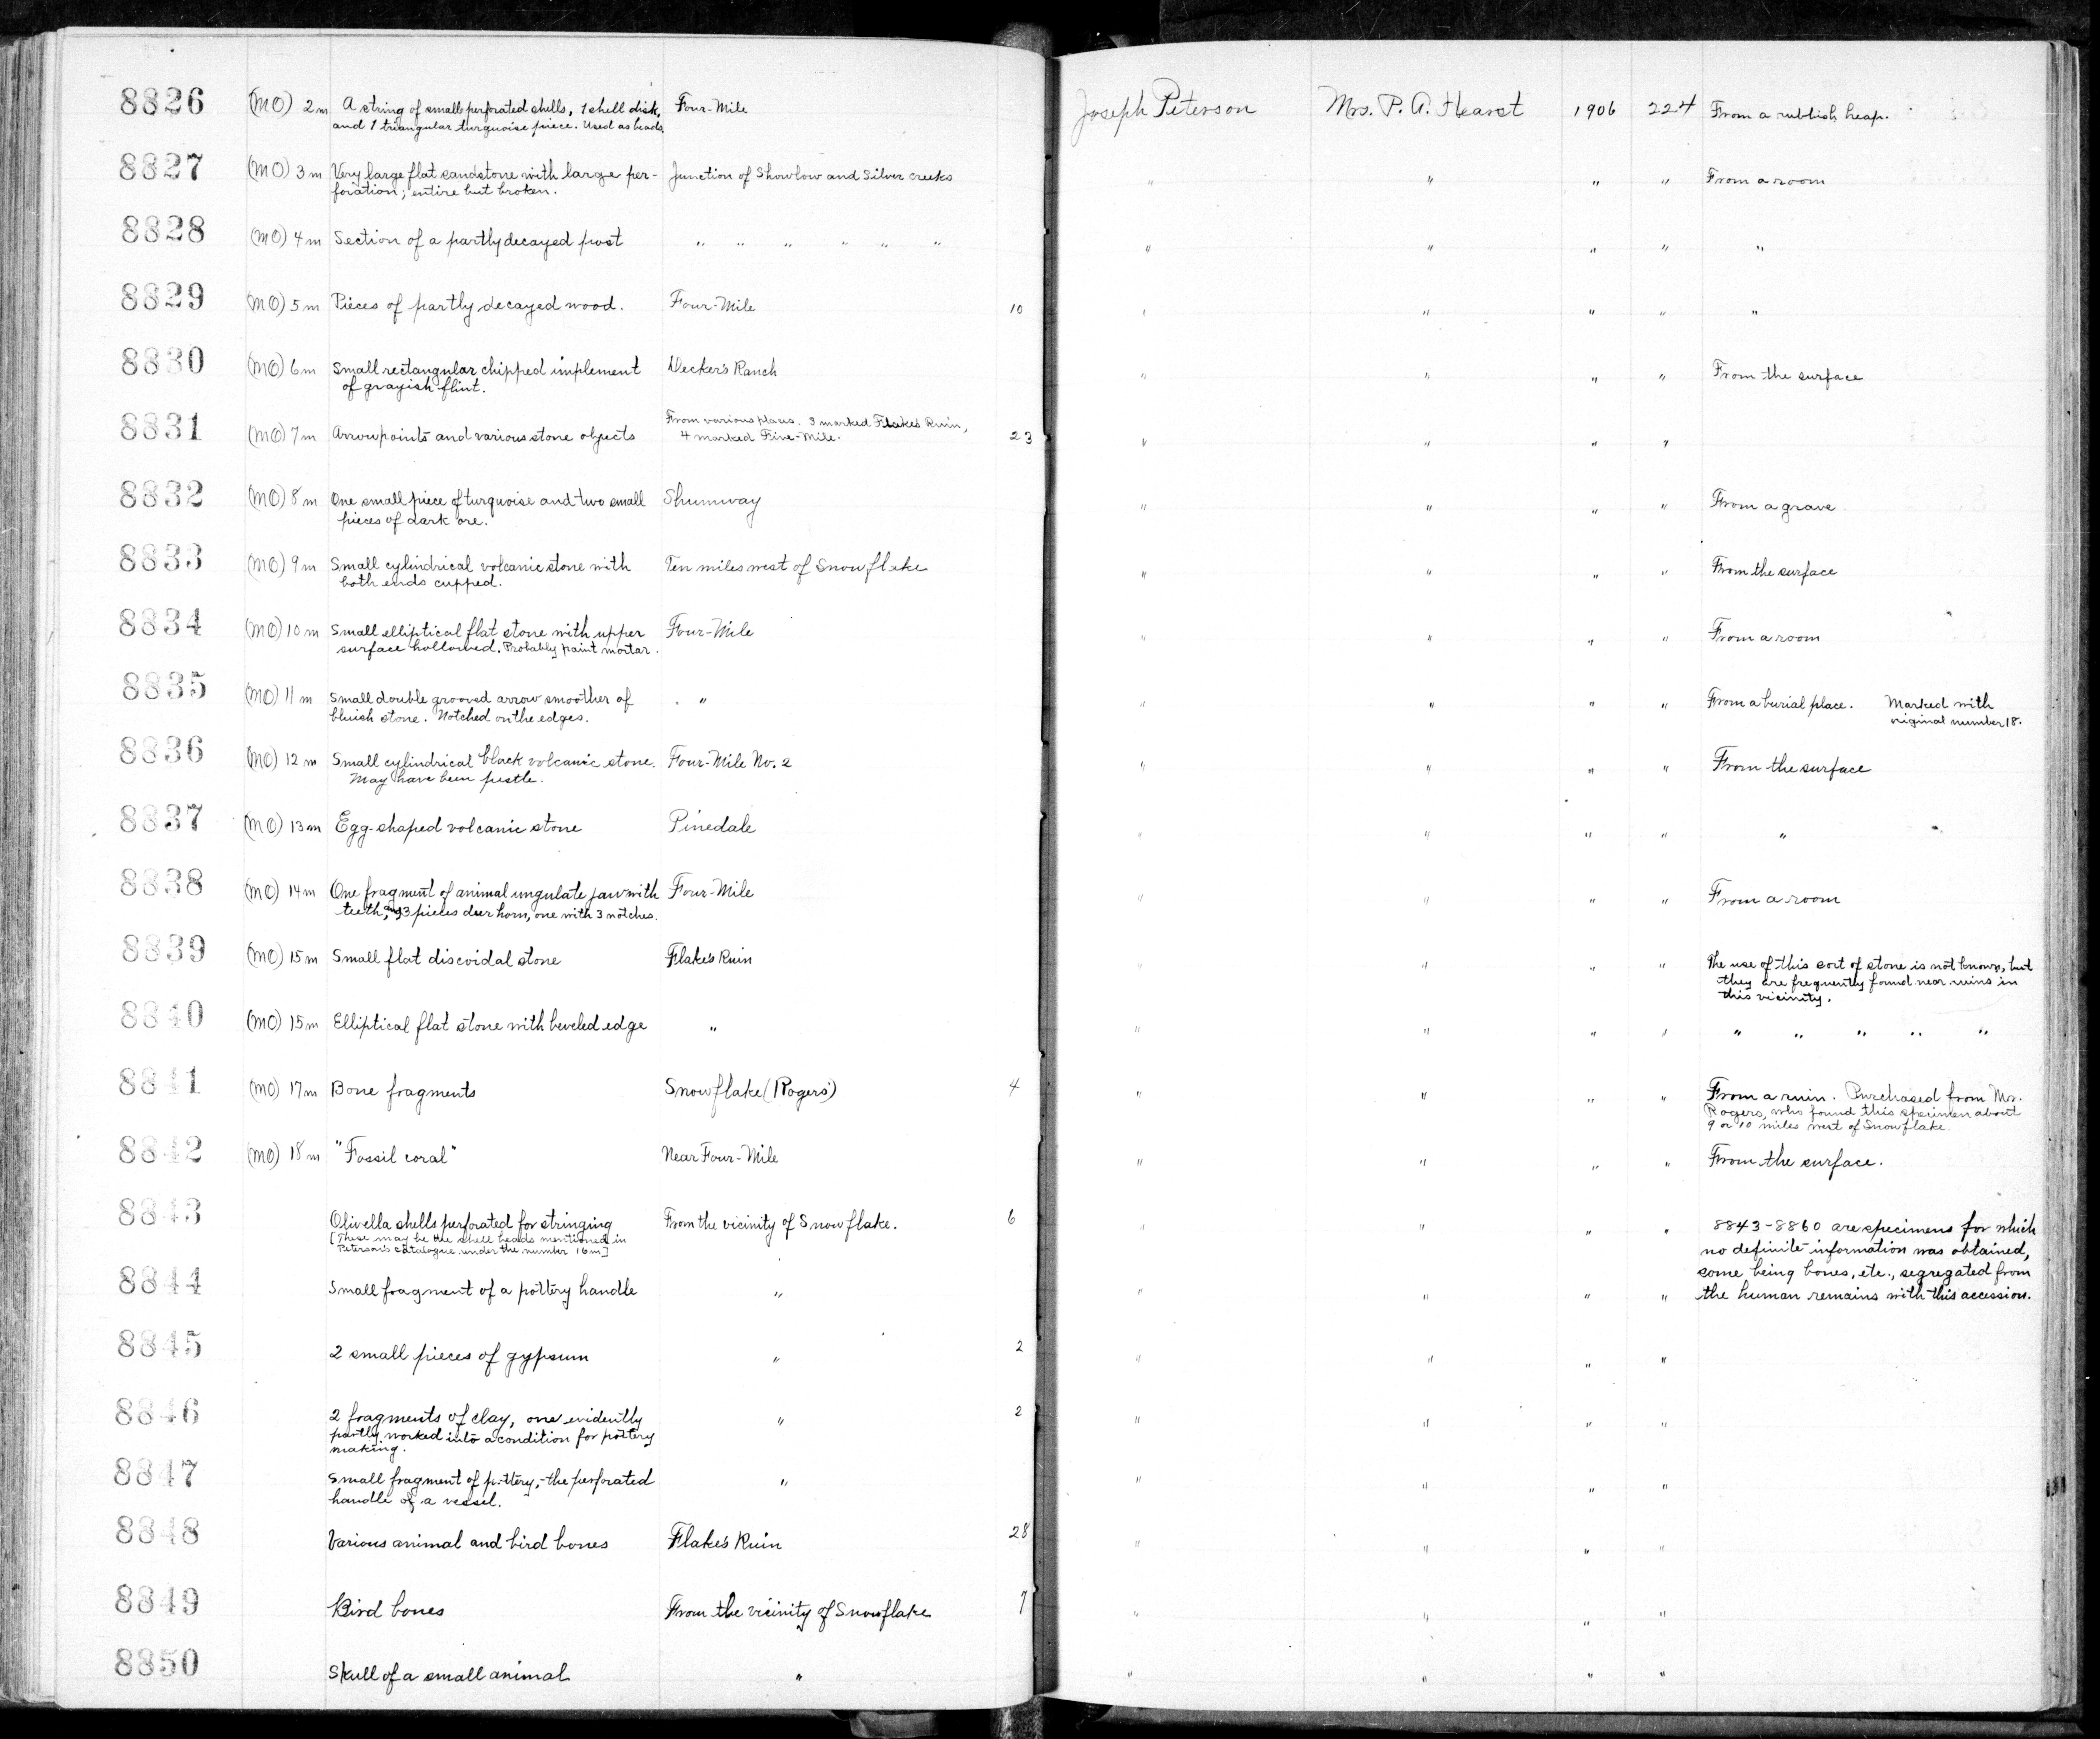 8826 (MO) 2m A string of small perforated shells, 1 shell disk, Four-Mile Joseph Peterson Mrs. P. A. Hearst 1906 224 From a rubbish heap.
and 1 triangular turquoise piece. Used as beads.
8827 (MO) 3m Very large flat sandstone with large per- Junction of Showlow and Silver creeks " " " " From a room
foration; entire but broken.
8828 (MO) 4m Section of a partly decayed post " " " " " " " " " " "
8829 (MO) 5m Pieces of partly decayed wood. Four-Mile 10 " " " " "
8830 (MO) 6m Small rectangular chipped implement Decker's Ranch " " " " From the surface
of grayish flint.
8831 (MO) 7m Arrowpoints and various stone objects From various places. 3 marked Flake's Ruin, 23 " " " "
4 marked Five-Mile.
8832 (MO) 8m One small piece of turquoise and two small Shumway " " " " From a grave
pieces of dark ore.
8833 (MO) 9m Small cylindrical volcanic stone with Ten miles west of Snowflake " " " " From the surface
both ends cupped.
8834 (MO) 10m Small elliptical flat stone with upper Four-Mile " " " " From a room
surface hollowed. Probably paint mortar.
8835 (MO) 11m Small double grooved arrow smoother of " " " " " " From a burial place. Marked with
bluish stone. Notched on the edges. original number 18.
8836 (MO) 12m Small cylindrical black volcanic stone. Four-Mile No. 2 " " " " From the surface
May have been pestle.
8837 (MO) 13m Egg-shaped volcanic stone Pinedale " " " " "
8838 (MO) 14m One fragment of animal ungulate jaw with Four-Mile " " " " From a room
teeth, and 3 pieces deer horn, one with 3 notches.
8839 (MO) 15m Small flat discoidal stone Flake's Ruin " " " " The use of this sort of stone is not known, but
they are frequently found near ruins in
this vicinity.
8840 (MO) 15m Elliptical flat stone with beveled edge " " " " " " " " " "
8841 (MO) 17m Bone fragments Snowflake (Rogers') 4 " " " " From a ruin. Purchased from Mr.
Rogers, who found this specimen about
9 or 10 miles west of Snowflake.
8842 (MO) 18m "Fossil coral" Near Four-Mile " " " " From the surface.
8843 Olivella shells perforated for stringing From the vicinity of Snowflake. 6 " " " " 8843-8860 are specimens for which
[These may be the shell beads mentioned in no definite information was obtained,
Peterson's catalogue under the number 16m] some being bones, etc., segregated from
8844 Small fragment of a pottery handle " " " " " the human remains with this accession.
8845 2 small pieces of gypsum " 2 " " " "
8846 2 fragments of clay, one evidently " 2 " " " "
partly worked into a condition for pottery
making.
8847 Small fragment of pottery,-the perforated " " " " "
handle of a vessel.
8848 Various animal and bird bones Flake's Ruin 28 " " " "
8849 Bird bones From the vicinity of Snowflake 7 " " " "
8850 Skull of a small animal " " " " "